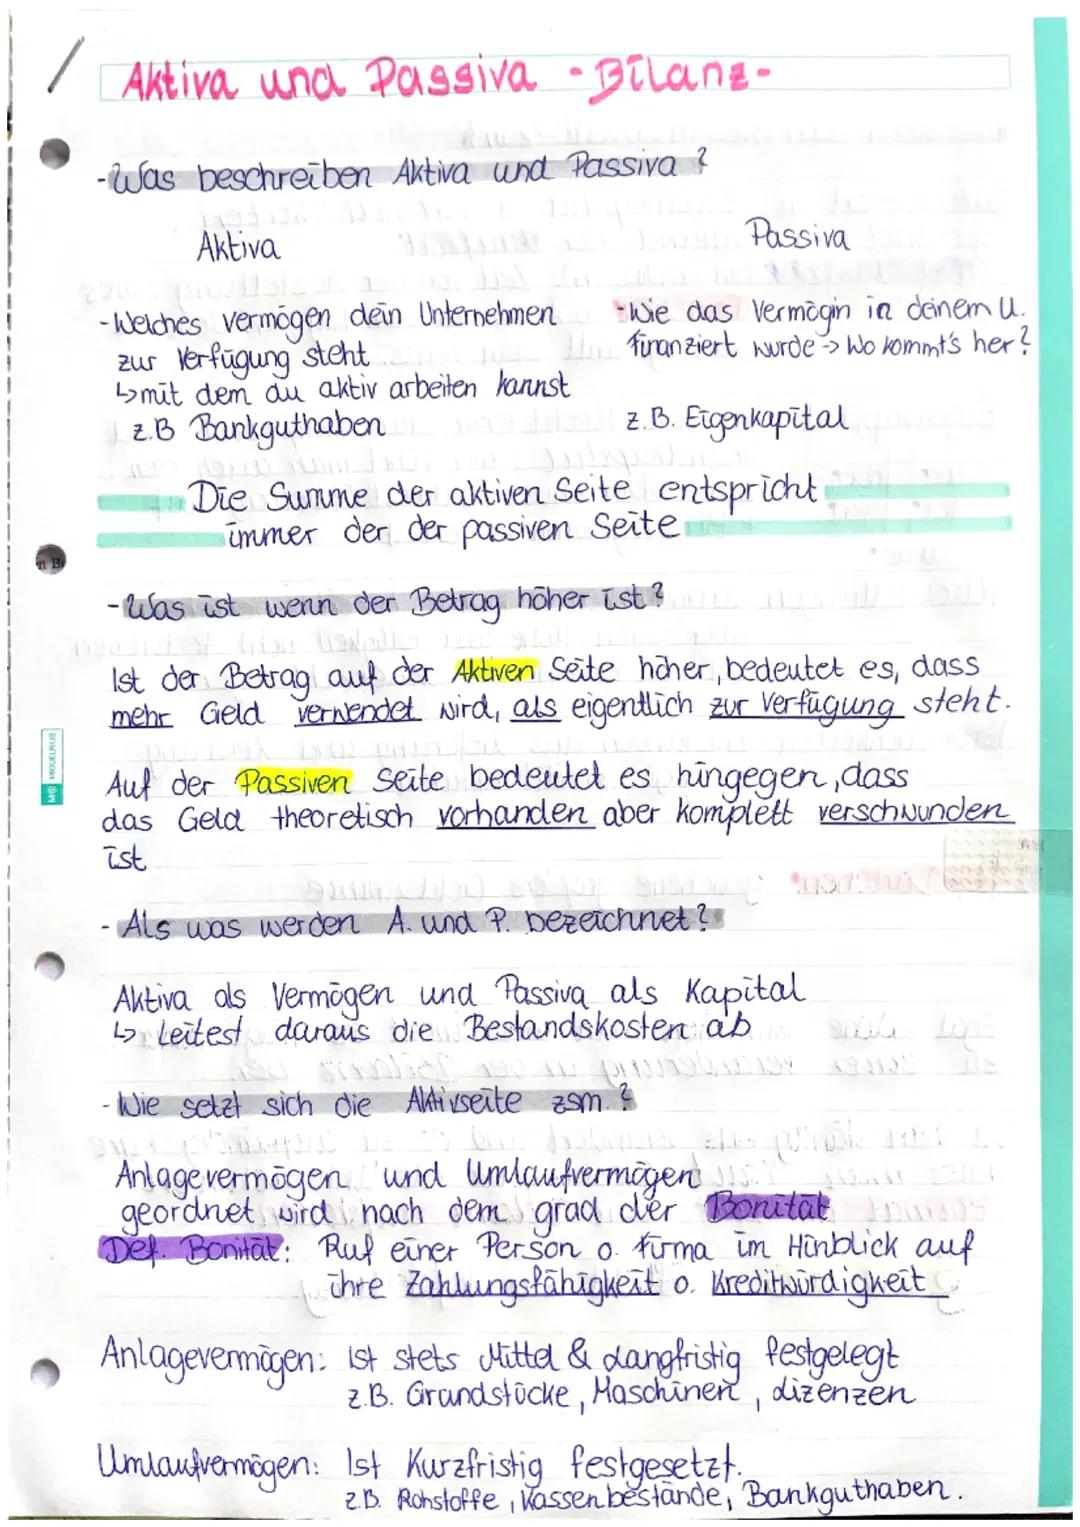 Aktiva und Passiva - Bilanz-
- Was beschreiben Aktiva und Passiva?
Aktiva
Passiva
- Welches vermögen dein Unternehmen
zur Verfügung steht
↳ mit dem du aktiv arbeiten kannst
z.B Bankguthaben
- Wie das Vermögin in deinem U.
finanziert wurde -> Wo kommt's her?
z.B. Eigenkapital
Die Summe der aktiven Seite entspricht
immer der der passiven Seite
- Was ist wenn der Betrag höher ist?
Ist der Betrag auf der Aktiven Seite höher, bedeutet es, dass
mehr Geld verwendet wird, als eigentlich zur Verfügung steht.
Auf der Passiven Seite bedeutet es hingegen, dass
das Geld theoretisch vorhanden aber komplett verschwunden
ist
- Als was werden A. und P. bezeichnet?
Aktiva als Vermögen und Passiva als Kapital
↳ Leitest daraus die Bestandskosten ab
- Wie setzt sich die Aktivseite zsm.?
Anlagevermögen und Umlaufvermögen
geordnet wird nach dem grad der Bonität
Def. Bonität: Ruf einer Person o. Firma im Hinblick auf
ihre Zahlungsfähigkeit o. Kreditwürdigkeit
Anlagevermögen: ist stets Mittel & Langfristig festgelegt
z.B. Grundstücke, Maschinen, Lizenzen
Umlaufvermögen: Ist Kurzfristig festgesetzt.
z.B. Rohstoffe, Kassenbestände, Bankguthaben.
MIQUELRIUS